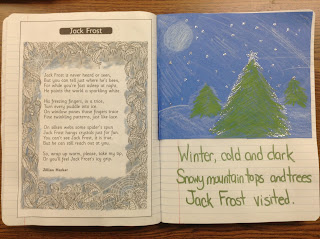 Jack Frost
Jack Frost is never heard or seen,
But you can tell just where he's been,
For while you're fast asleep at night,
He paints the world a sparkling white.
His freezing fingers, in a trice,
Turn every puddle into ice.
On window panes those fingers trace
Fine swirling patterns, just like lace.
On others webs some spider's spun
Jack Frost hangs crystals just for fun.
You can't see Jack Frost, it is true,
But he can still reach out at you.
So, wrap up warm, please, take my tip,
Or you'll feel Jack Frost's icy grip.
Winter, cold and dark
Snowy mountain tops and trees
Jack Frost visited.